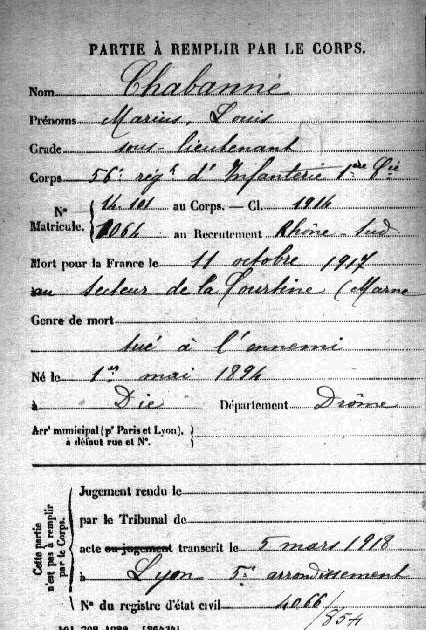 PARTIE À REMPLIR PAR LE CORPS.
Nom Chabanne
Prénoms Marius, Louis
Grade sous-lieutenant
Corps 56e régt d'Infanterie 1ere Cie
No Matricule. 14 101 au Corps. — Cl. 1914
1064 au Recrutement Rhône-Sud
Mort pour la France le 11 octobre 1917
au secteur de la Courtine (Marne
Genre de mort
tué à l'ennemi
Né le 1er mai 1894
à Die Département Drôme
Arrt municipal (pr Paris et Lyon),
à défaut rue et No.
Cette partie n'est pas à remplir par le Corps.
Jugement rendu le
par le Tribunal de
acte ou jugement transcrit le 5 mars 1918
à Lyon 5e arrondissement
No du registre d'état civil 4066/854